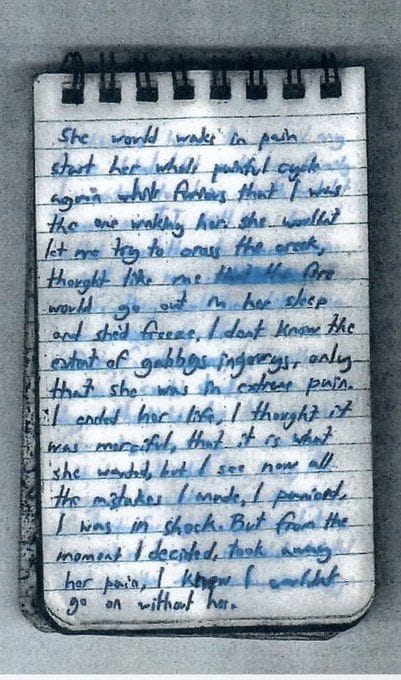 She would wake in pain
start her whole painful cycle
again while furious that I was
the one waking her. she wouldnt
let me try to cross the creek,
thought like me the fire
would go out in her sleep
and shed freeze. I dont know the
extent of gabbys injurys, only
that she was in extreme pain.
I ended her life, I thought it
was merciful, that it is what
she wanted, but I see now all
the mistakes I made, I panicked,
I was in shock. But from the
moment I decided, took away
her pain, I knew I wouldnt
go on without her.